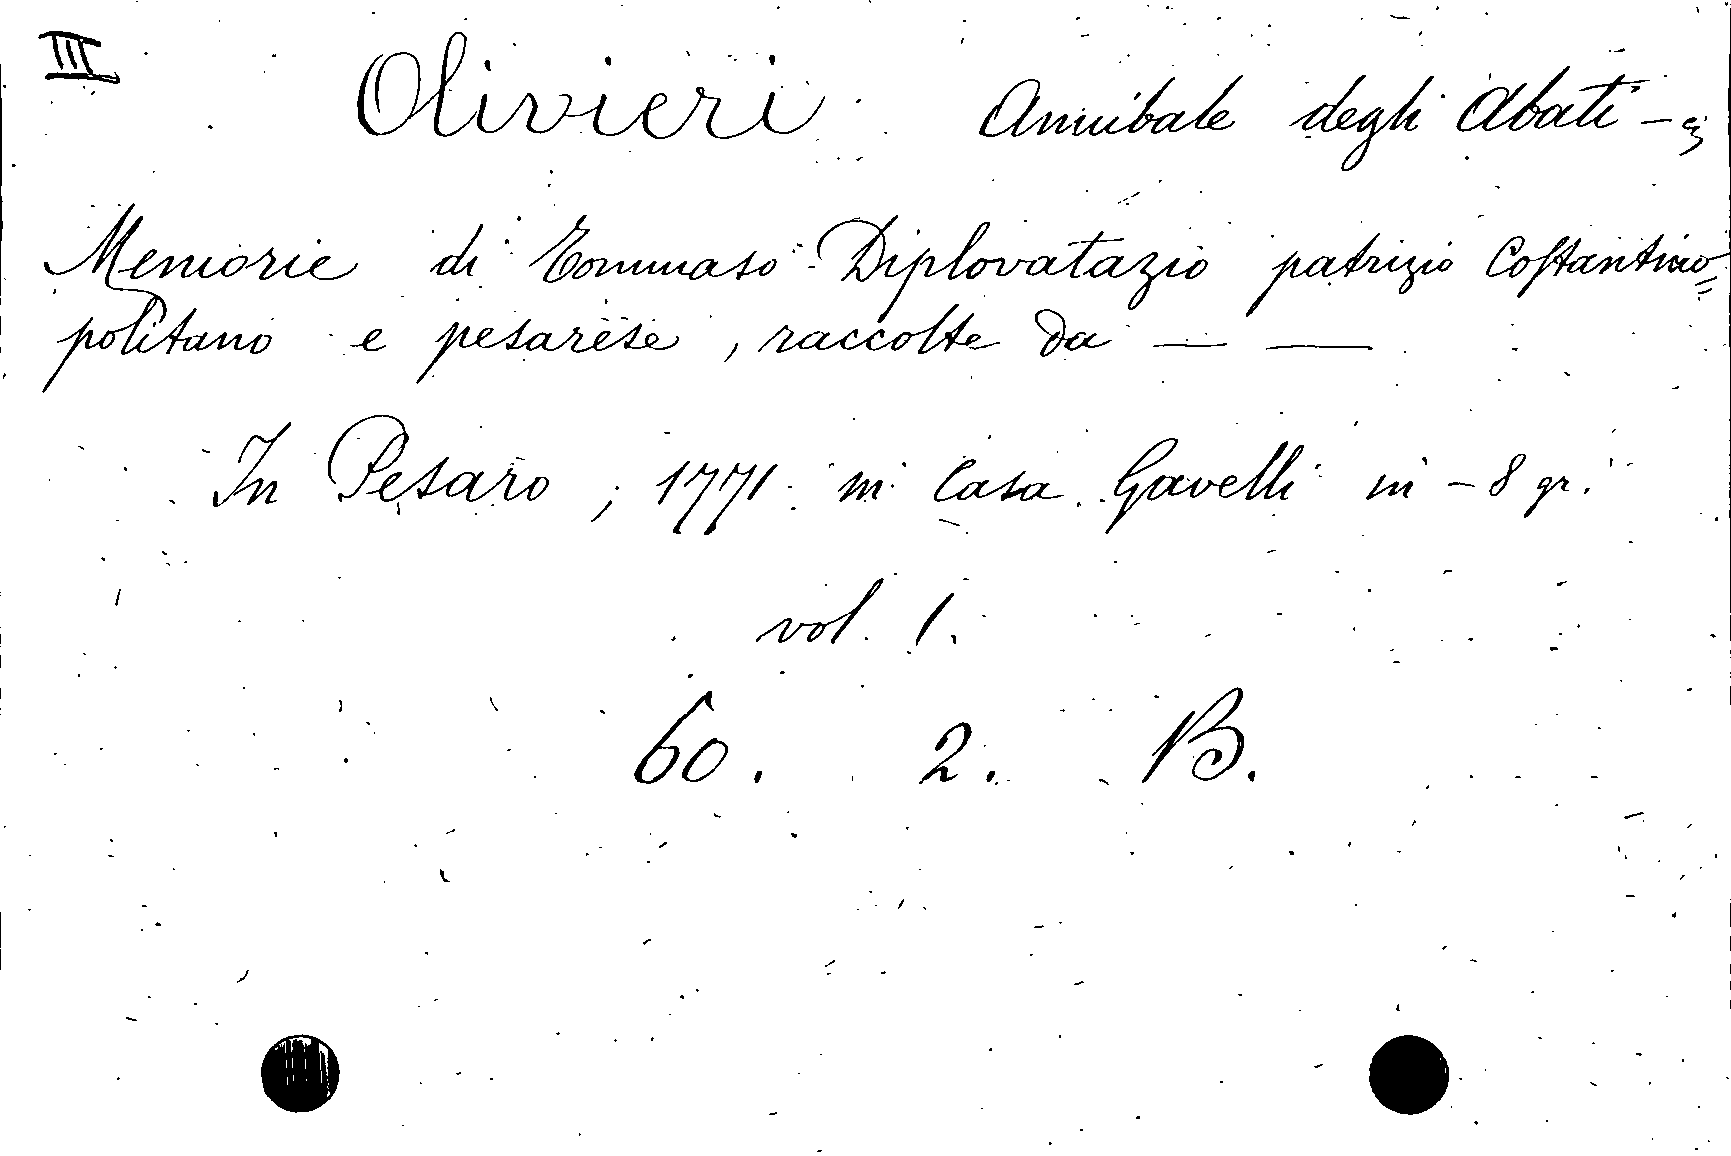 III
Olivieri Annibale degli Abati –
Memorie di Tommaso Diplovatazio patrizio Costantino=
politano e pesarese, raccolte da — —
In Pesaro, 1771. in Casa Gavelli in – 8 gr.
vol. 1.
60. 2. B.